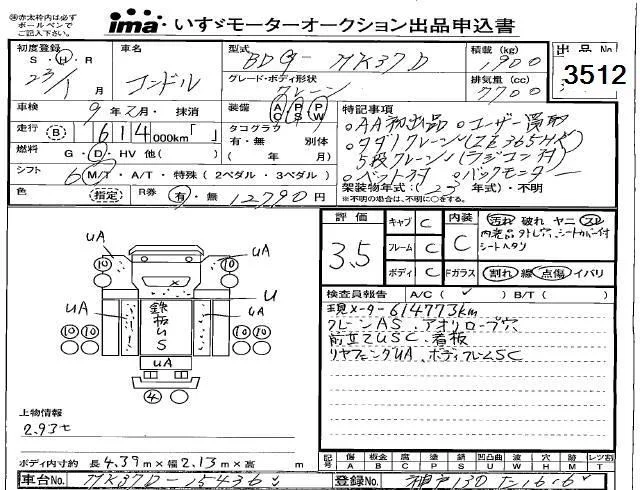 ※赤太枠内は必ず
ボールペンで
ご記入下さい。
ima いすゞモーターオークション出品申込書
初度登録 S・H・R 23/1 月
車名 コンドル
型式 BDG-MK37D
積載(kg) 1900
出品No 3512
グレード・ボディ形状 クレーン
排気量(cc) 7700
車検 9年 2月・抹消
装備 AC PS PW
特記事項
走行 B 614000km「 」
タコグラフ 有・無 別体
(年 月)
燃料 G・D・HV 他( )
シフト 6 M/T・A/T・特殊(2ペダル・3ペダル)
色 指定 R券 有・無 12790円
○AA初出品 ○ユーザー買取
○タダノクレーン
5段クレーン(ラジコン付)
○ベット付 ○バックモニター
架装物年式:(23 年式)・不明
※不明の場合は、不明に○をする。
評価 3.5
キャブ C
フレーム C
ボディ C
内装 C
汚れ 破れ ヤニ スレ
シートヘタリ
Fガラス 割れ 線 点傷 イバリ
検査員報告 A/C( ✓ ) B/T( )
現メーター614773km
クレーンAS、アオリロープ穴
前立てUSC、看板
リヤフェニングUA、ボディフレームSC
UA
UA
10
10
UA
UA
U
10 10
10 10
鉄板US
UA
4
上物情報
2.93t
ボディ内寸約 長4.39m×幅2.13m×高 m
記号 傷A 板金B 腐C 塗P 錆S 凹凸曲U 波W 穴H 跡M レンズ割T
車台No. MK37D-15436
登録No. 神戸130